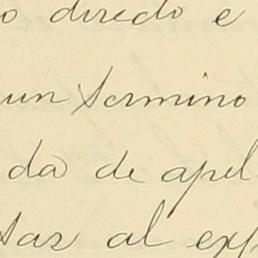 o directo e
un termino
da de apel
sar al exp